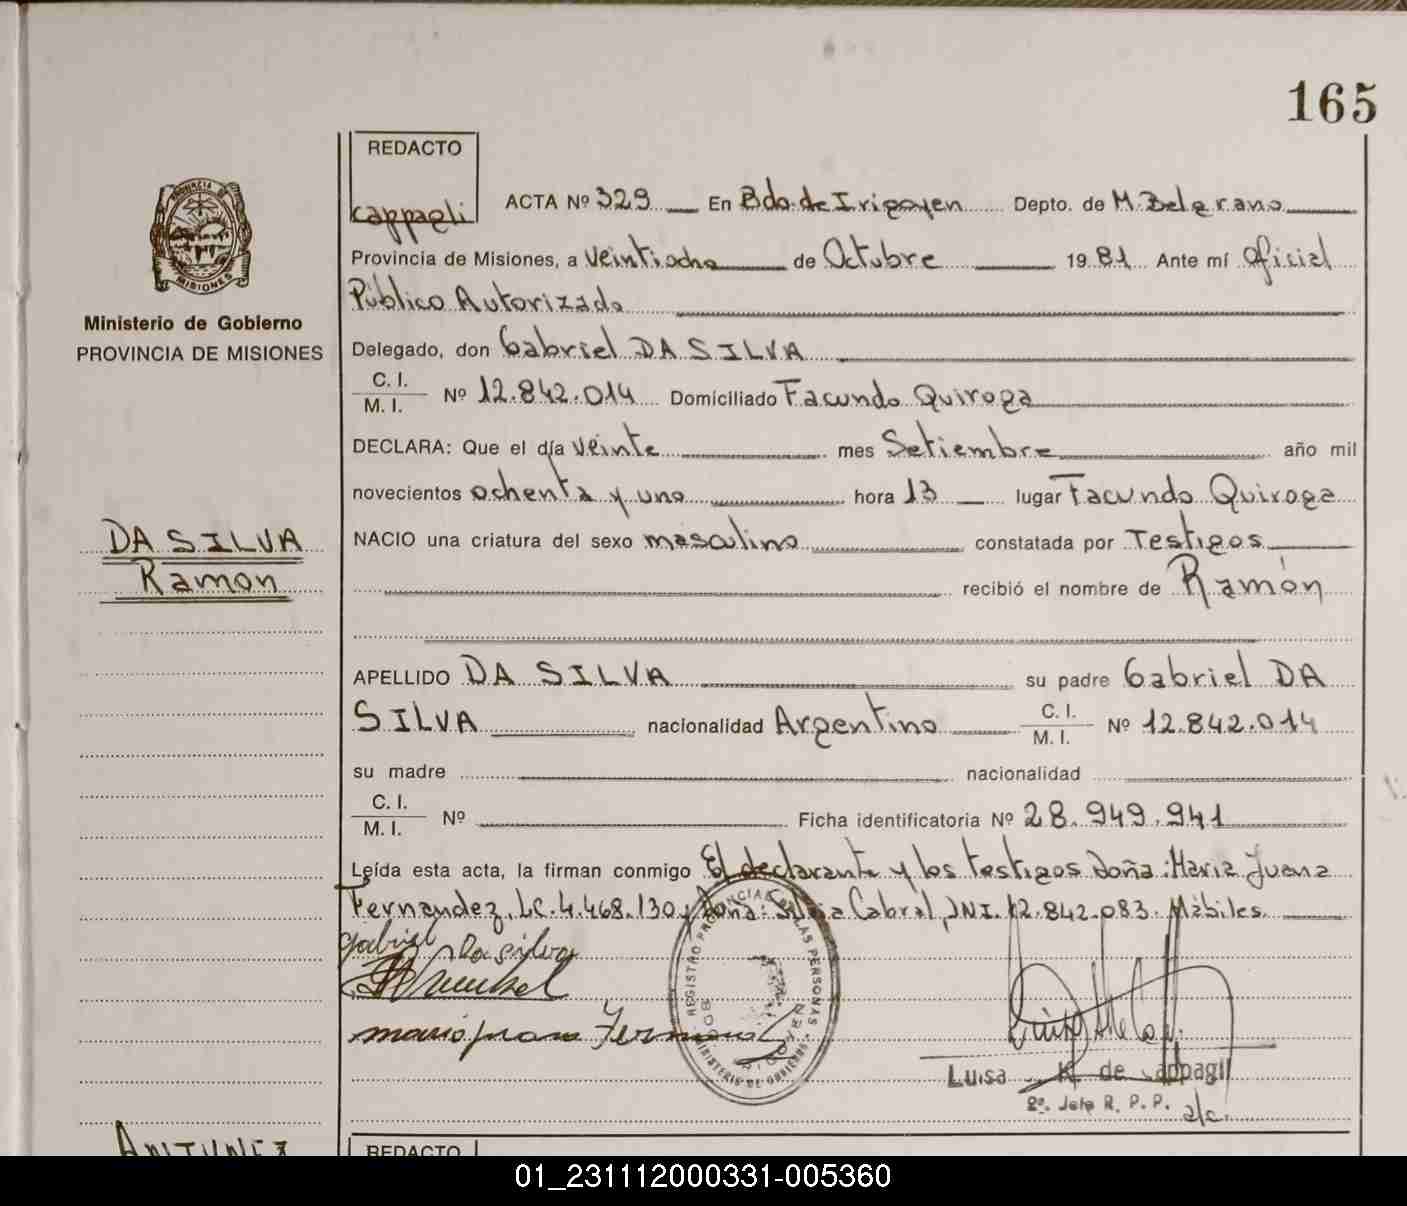 165
REDACTO
cappagli
ACTA Nº 329 En Bdo. de Irigoyen Depto. de M. Belgrano
Provincia de Misiones, a veintiocho de Octubre 1981 Ante mí Oficial
Público Autorizado
Ministerio de Gobierno
PROVINCIA DE MISIONES
Delegado, don Gabriel DA SILVA
C. I.
M. I. Nº 12.842.014 Domiciliado Facundo Quiroga
DECLARA: Que el día veinte mes Setiembre año mil
novecientos ochenta y uno hora 13 lugar Facundo Quiroga
DA SILVA
Ramon
NACIO una criatura del sexo masculino constatada por Testigos
recibió el nombre de Ramón
APELLIDO DA SILVA su padre Gabriel DA
SILVA nacionalidad Argentino C. I. M. I. Nº 12.842.014
su madre nacionalidad
C. I.
M. I. Nº Ficha identificatoria Nº 28.949.941
Leída esta acta, la firman conmigo El declarante y los testigos Doña: Maria Juana
Fernandez, LC. 4.468.130 y Doña: Silvia Cabral, DNI. 12.842.083. Hábiles.
Gabriel Da silva
REGISTRO PROVINCIAL DE LAS PERSONAS
MINISTERIO DE GOBIERNO
BDO. IRIGOYEN
maria juana Fernandez
Luisa K. de Cappagli
2º. Jefe R. P. P. a/c.
ANTUNEZ
REDACTO
01_231112000331-005360